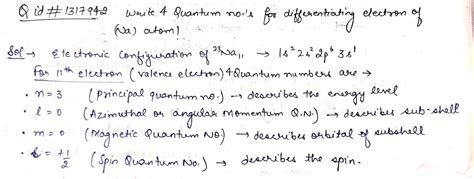 Q id # 1317942 write 4 Quantum no.'s for differentiating electron of
(Na) atom!
Sol → Electronic Configuration of ²³Na₁₁ → 1s² 2s² 2p⁶ 3s¹
For 11th electron (valence electron) 4 Quantum numbers are →
• n = 3 (Principal quantum no.) → describes the energy level
• l = 0 (Azimuthal or angular Momentum Q.N.) → describes sub-shell
• m = 0 (Magnetic Quantum No) → describes orbital of subshell
• s = +1/2 (Spin Quantum No.) → describes the spin.